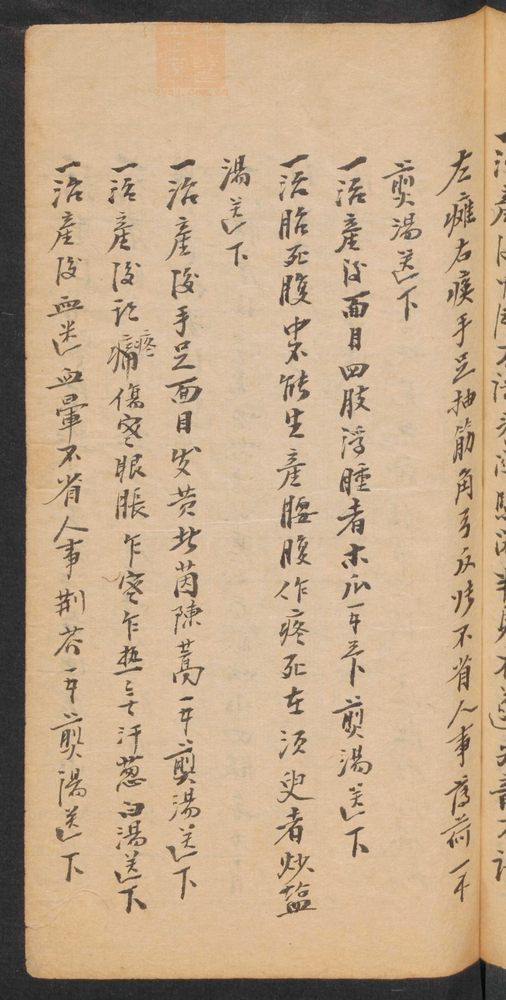 左癱右瘓手足抽筋角弓反張不省人事薄荷一不
煎湯送下
一治產後面目四肢浮腫者木瓜一不煎湯送下
一治胎死腹中不能生產腰腹作疼死在須臾者炒鹽
湯送下
一治產後手足面目发黄者茵陳蒿一不煎湯送下
一治產後疼痛傷寒眼脹乍寒乍熱無汗葱白湯送下
一治產後血迷血暈不省人事荆芥一不煎湯送下